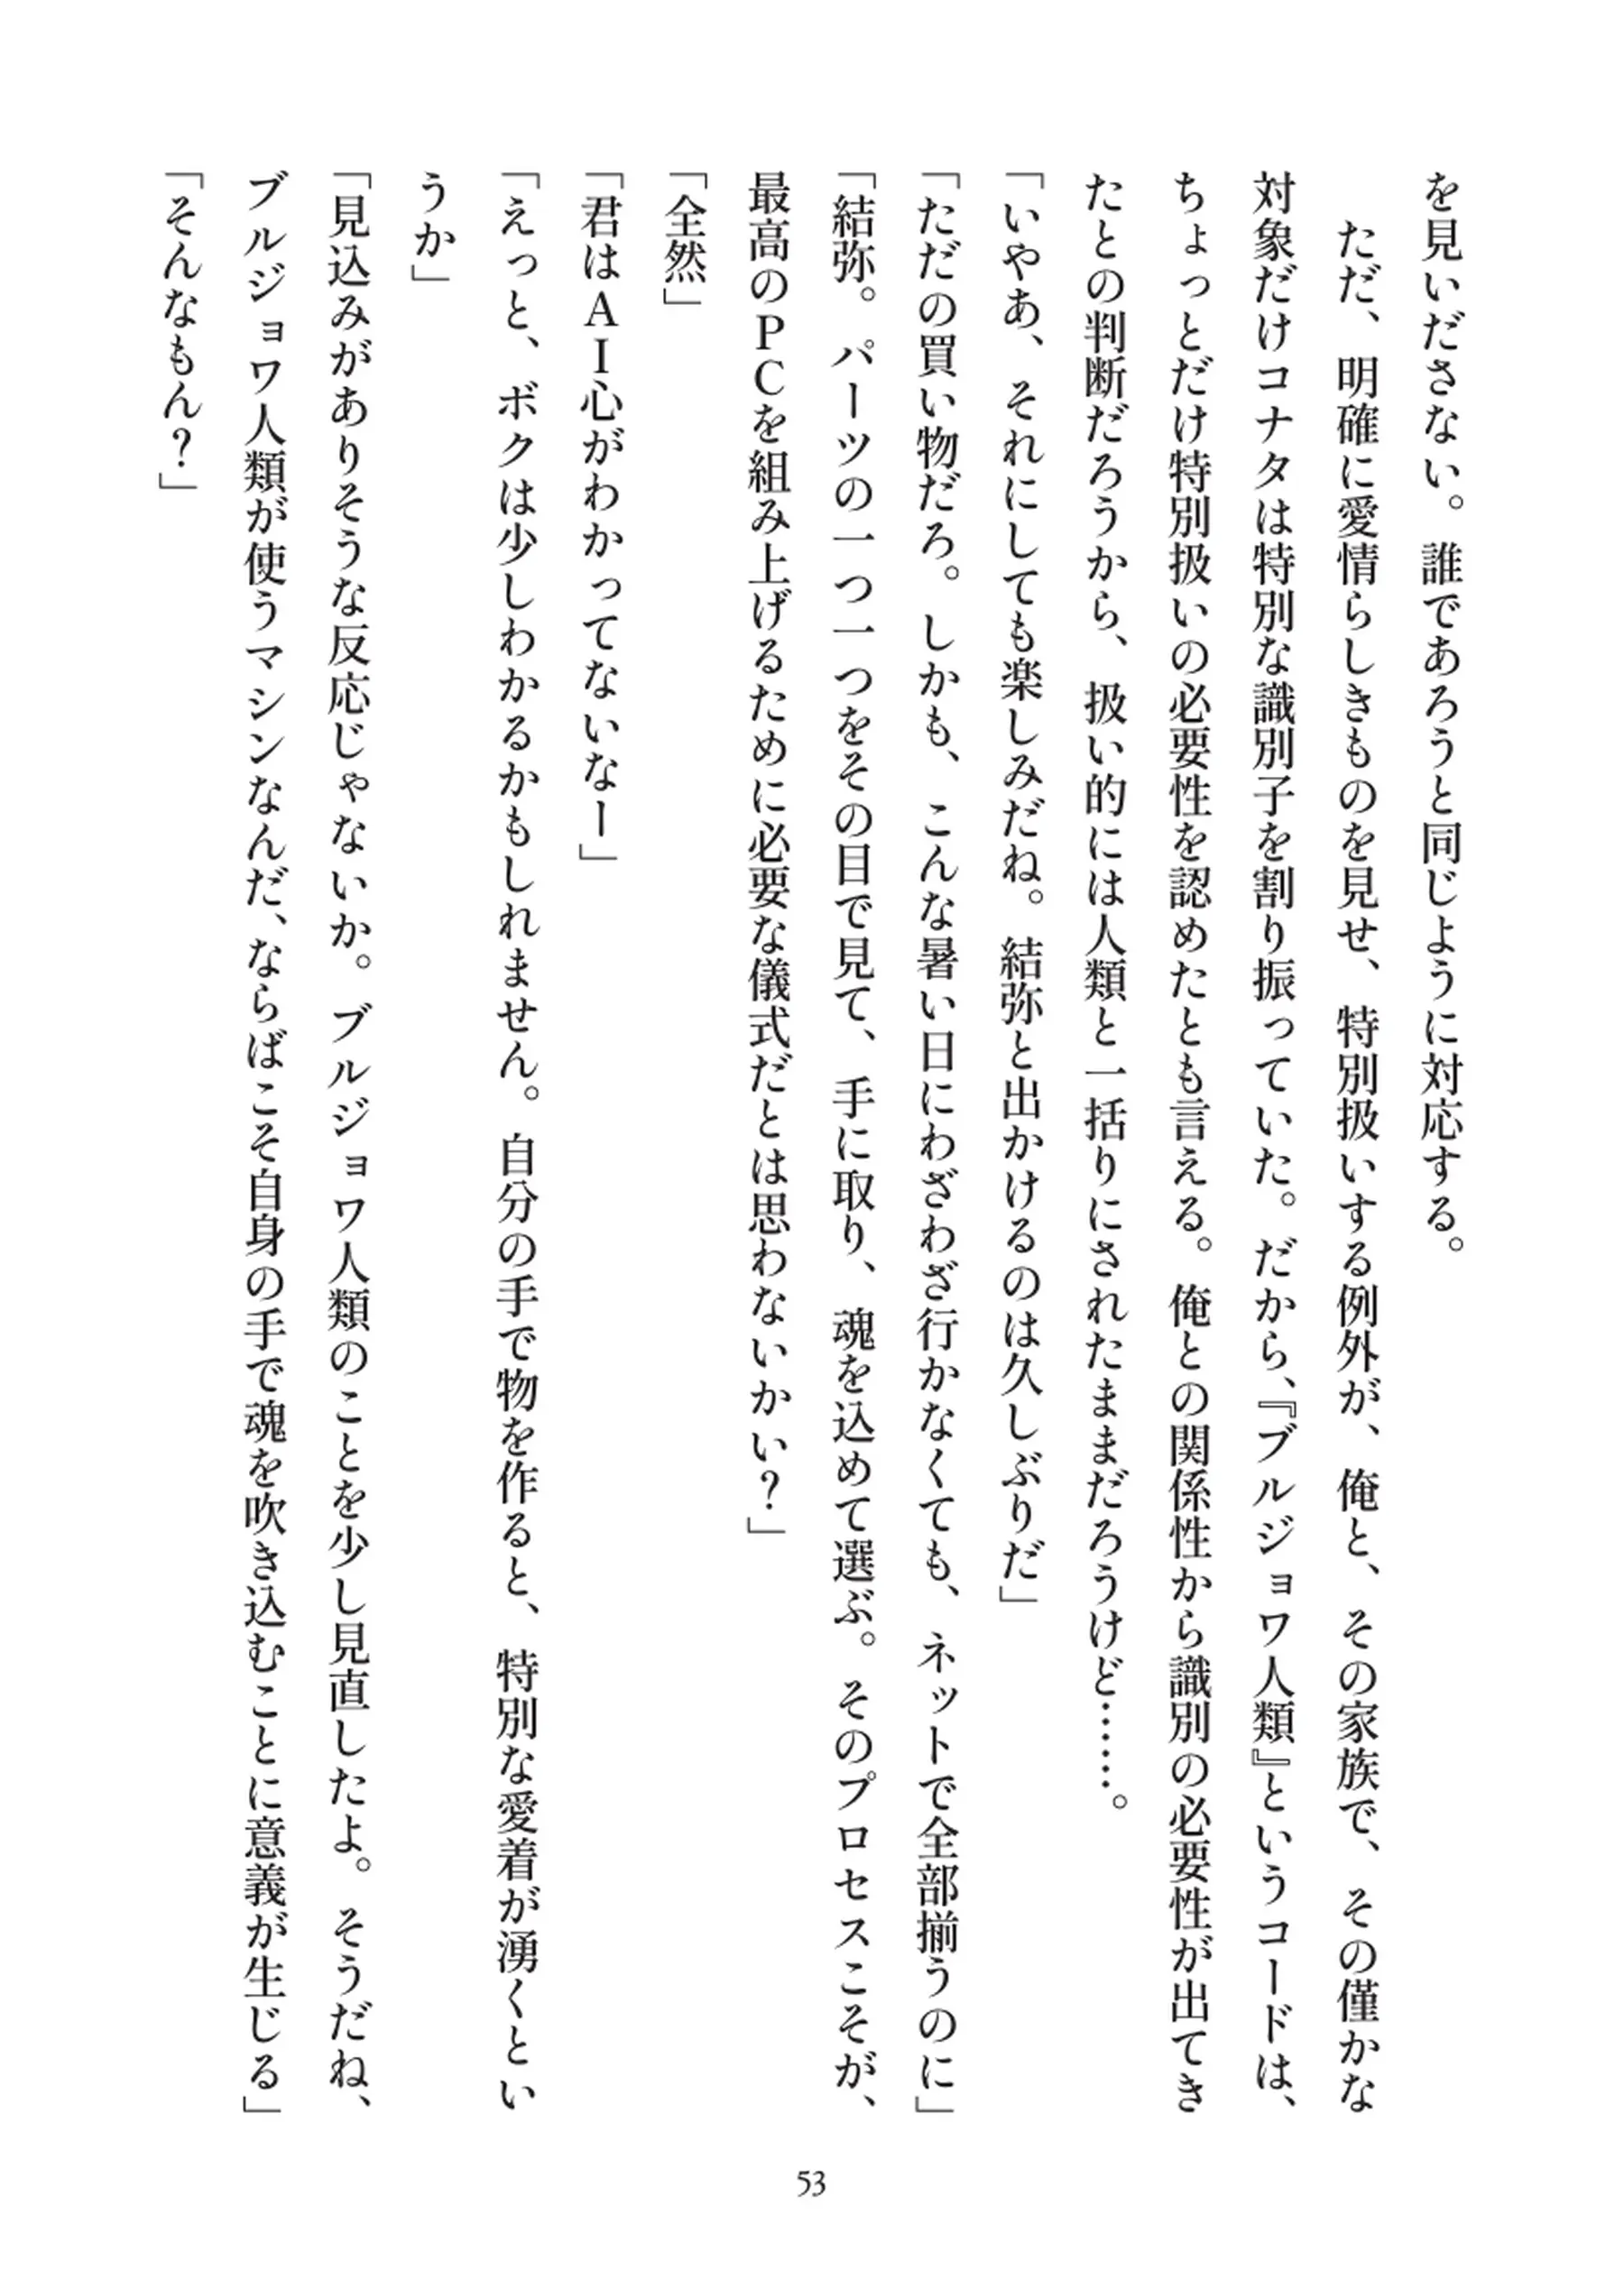 を見いださない。誰であろうと同じように対応する。
　ただ、明確に愛情らしきものを見せ、特別扱いする例外が、俺と、その家族で、その僅かな
対象だけコナタは特別な識別子を割り振っていた。だから、『ブルジョワ人類』というコードは、
ちょっとだけ特別扱いの必要性を認めたとも言える。俺との関係性から識別の必要性が出てき
たとの判断だろうから、扱い的には人類と一括りにされたままだろうけど……。
「いやあ、それにしても楽しみだね。結弥と出かけるのは久しぶりだ」
「ただの買い物だろ。しかも、こんな暑い日にわざわざ行かなくても、ネットで全部揃うのに」
「結弥。パーツの一つ一つをその目で見て、手に取り、魂を込めて選ぶ。そのプロセスこそが、
最高のＰＣを組み上げるために必要な儀式だとは思わないかい？」
「全然」
「君はＡＩ心がわかってないなー」
「えっと、ボクは少しわかるかもしれません。自分の手で物を作ると、特別な愛着が湧くとい
うか」
「見込みがありそうな反応じゃないか。ブルジョワ人類のことを少し見直したよ。そうだね、
ブルジョワ人類が使うマシンなんだ、ならばこそ自身の手で魂を吹き込むことに意義が生じる」
「そんなもん？」
53